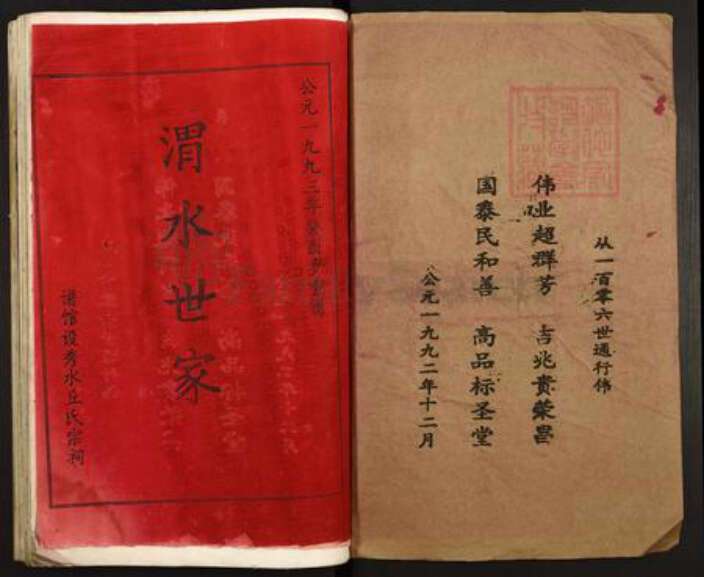 从一百零六世通行伟
伟业超群芳 吉兆贵荣昌
国泰民和善 高品标圣堂
公元一九九二年十二月
公元一九九三年癸酉岁重修
渭水世家
谱馆设秀水丘氏宗祠